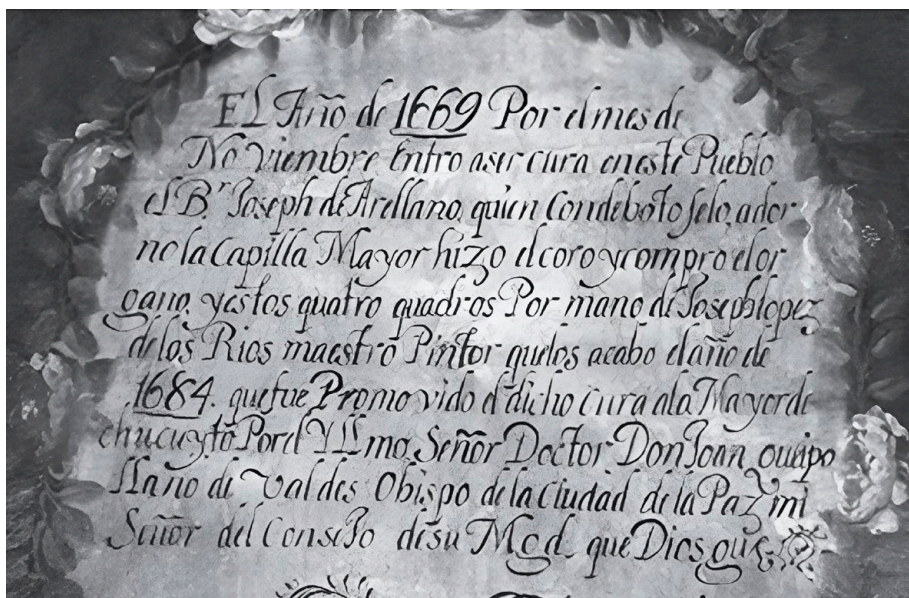 EL Año de 1669 Por el mes de
Noviembre Entro aser cura eneste Pueblo
el B.r Joseph de Arellano, quien Condeboto selo, ador
no la Capilla Mayor hizo el coro y compro el or
gano, y estos quatro quadros Por mano de Joseph lopez
de los Rios maestro Pintor que los acabo el año de
1684. que fue Promovido el dicho cura ala Mayor de
chucuyto Por el Yllmo. Señor Doctor Don Joan queipo
llano de Valdes Obispo de la Ciudad de la Paz, mi
Señor del Consejo de su Mgd. que Dios gue.